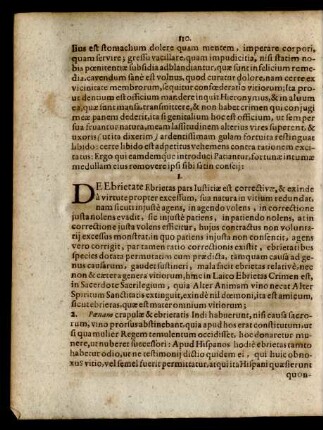 110.
lius est stomachum dolere quam mentem, imperare corpori,
quam servire; gressu vacillare, quam impudicitia, nisi statim no-
bis pœnitentiæ subsidia adblandiantur, quæ sunt infelicium reme-
dia, cavendum sanè est volnus, quod curatur dolore, nam certe ex
vicinitate membrorum, sequitur confœderatio vitiorum; Ita pro-
ut dentium est officium mandere inquit Hieronymus, & in alvum
ea, quæ sunt mansa, transmittere, & non habet crimen qui conjugi
meæ panem dederit, ita si genitalium hoc est officium, ut semper
sua fruantur natura, meam lassitudinem alterius vires superent, &
uxoris (ut ita dixerim) ardentissimam gulam fortuita restinguat
libido: certe libido est adpetitus vehemens contra rationem exci-
tatus: Ergo qui eamdemque introduci
medullam eius removere ipsi sibi satin conscij:
1.
DE Ebrietate Ebrietas pars Iustitiæ est correctivæ, & exinde
à virtute propter excessum, sua natura in vitium redundat,
nam sicut injustè agens, in agendo volens, in correctione
justa nolens evadit, sic injustè patiens, in patiendo nolens, at in
correctione justa volens efficitur, hujus contractus non volunta-
rij excessus monstrat, in quo patiens injusta non consensit, agens
verò corrigit, par tamen ratio correctionis exsistit, ebrietati bes
species dotata permutatio cum prædicta, tamquam causa ad ge-
nus causarum, gaudet sustineri, mala facit ebrietas relativè, nec
non & cætera genera vitiorum, hinc in Laico Ebrietas Crimen est,
in Sacerdote Sacrilegium, quia Alter Animam vino necat Alter
Spiritum Sanctitatis extinguit, exinde nil dæmoni, ita est amicum,
sicut ebrietas, quæ est mater omnium vitiorum;
2. Pœnam crapulæ & ebrietatis Indi habuerunt, nisi causâ sacro-
rum, vino prorsus abstinebant, quia apud hos erat constitutum, ut
si qua mulier Regem temulentum occidisset, hoc donaretur mu-
nere, ut nuberet successori: Apud Hispanos hodiè ebrietas tamto
habetur odio, ut ne testimonij dictio quidem ei, qui huic obno-
xus vitio, vel semel fuerit permittatur, atqui ita Hispani quæsierunt
quon-